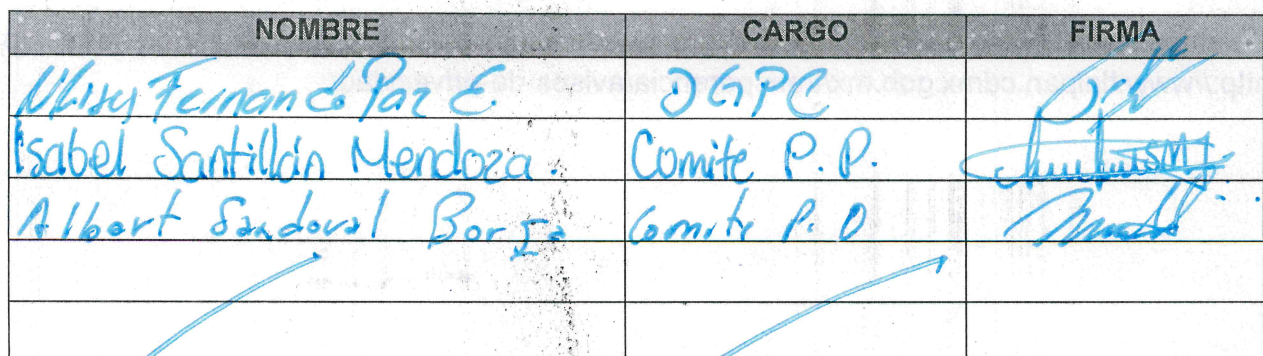 NOMBRE CARGO FIRMA
Ulises Fernando Paz E DGPC
Isabel Santillán Mendoza. Comite P.P.
Albert Sandoval Borja Comite P.P